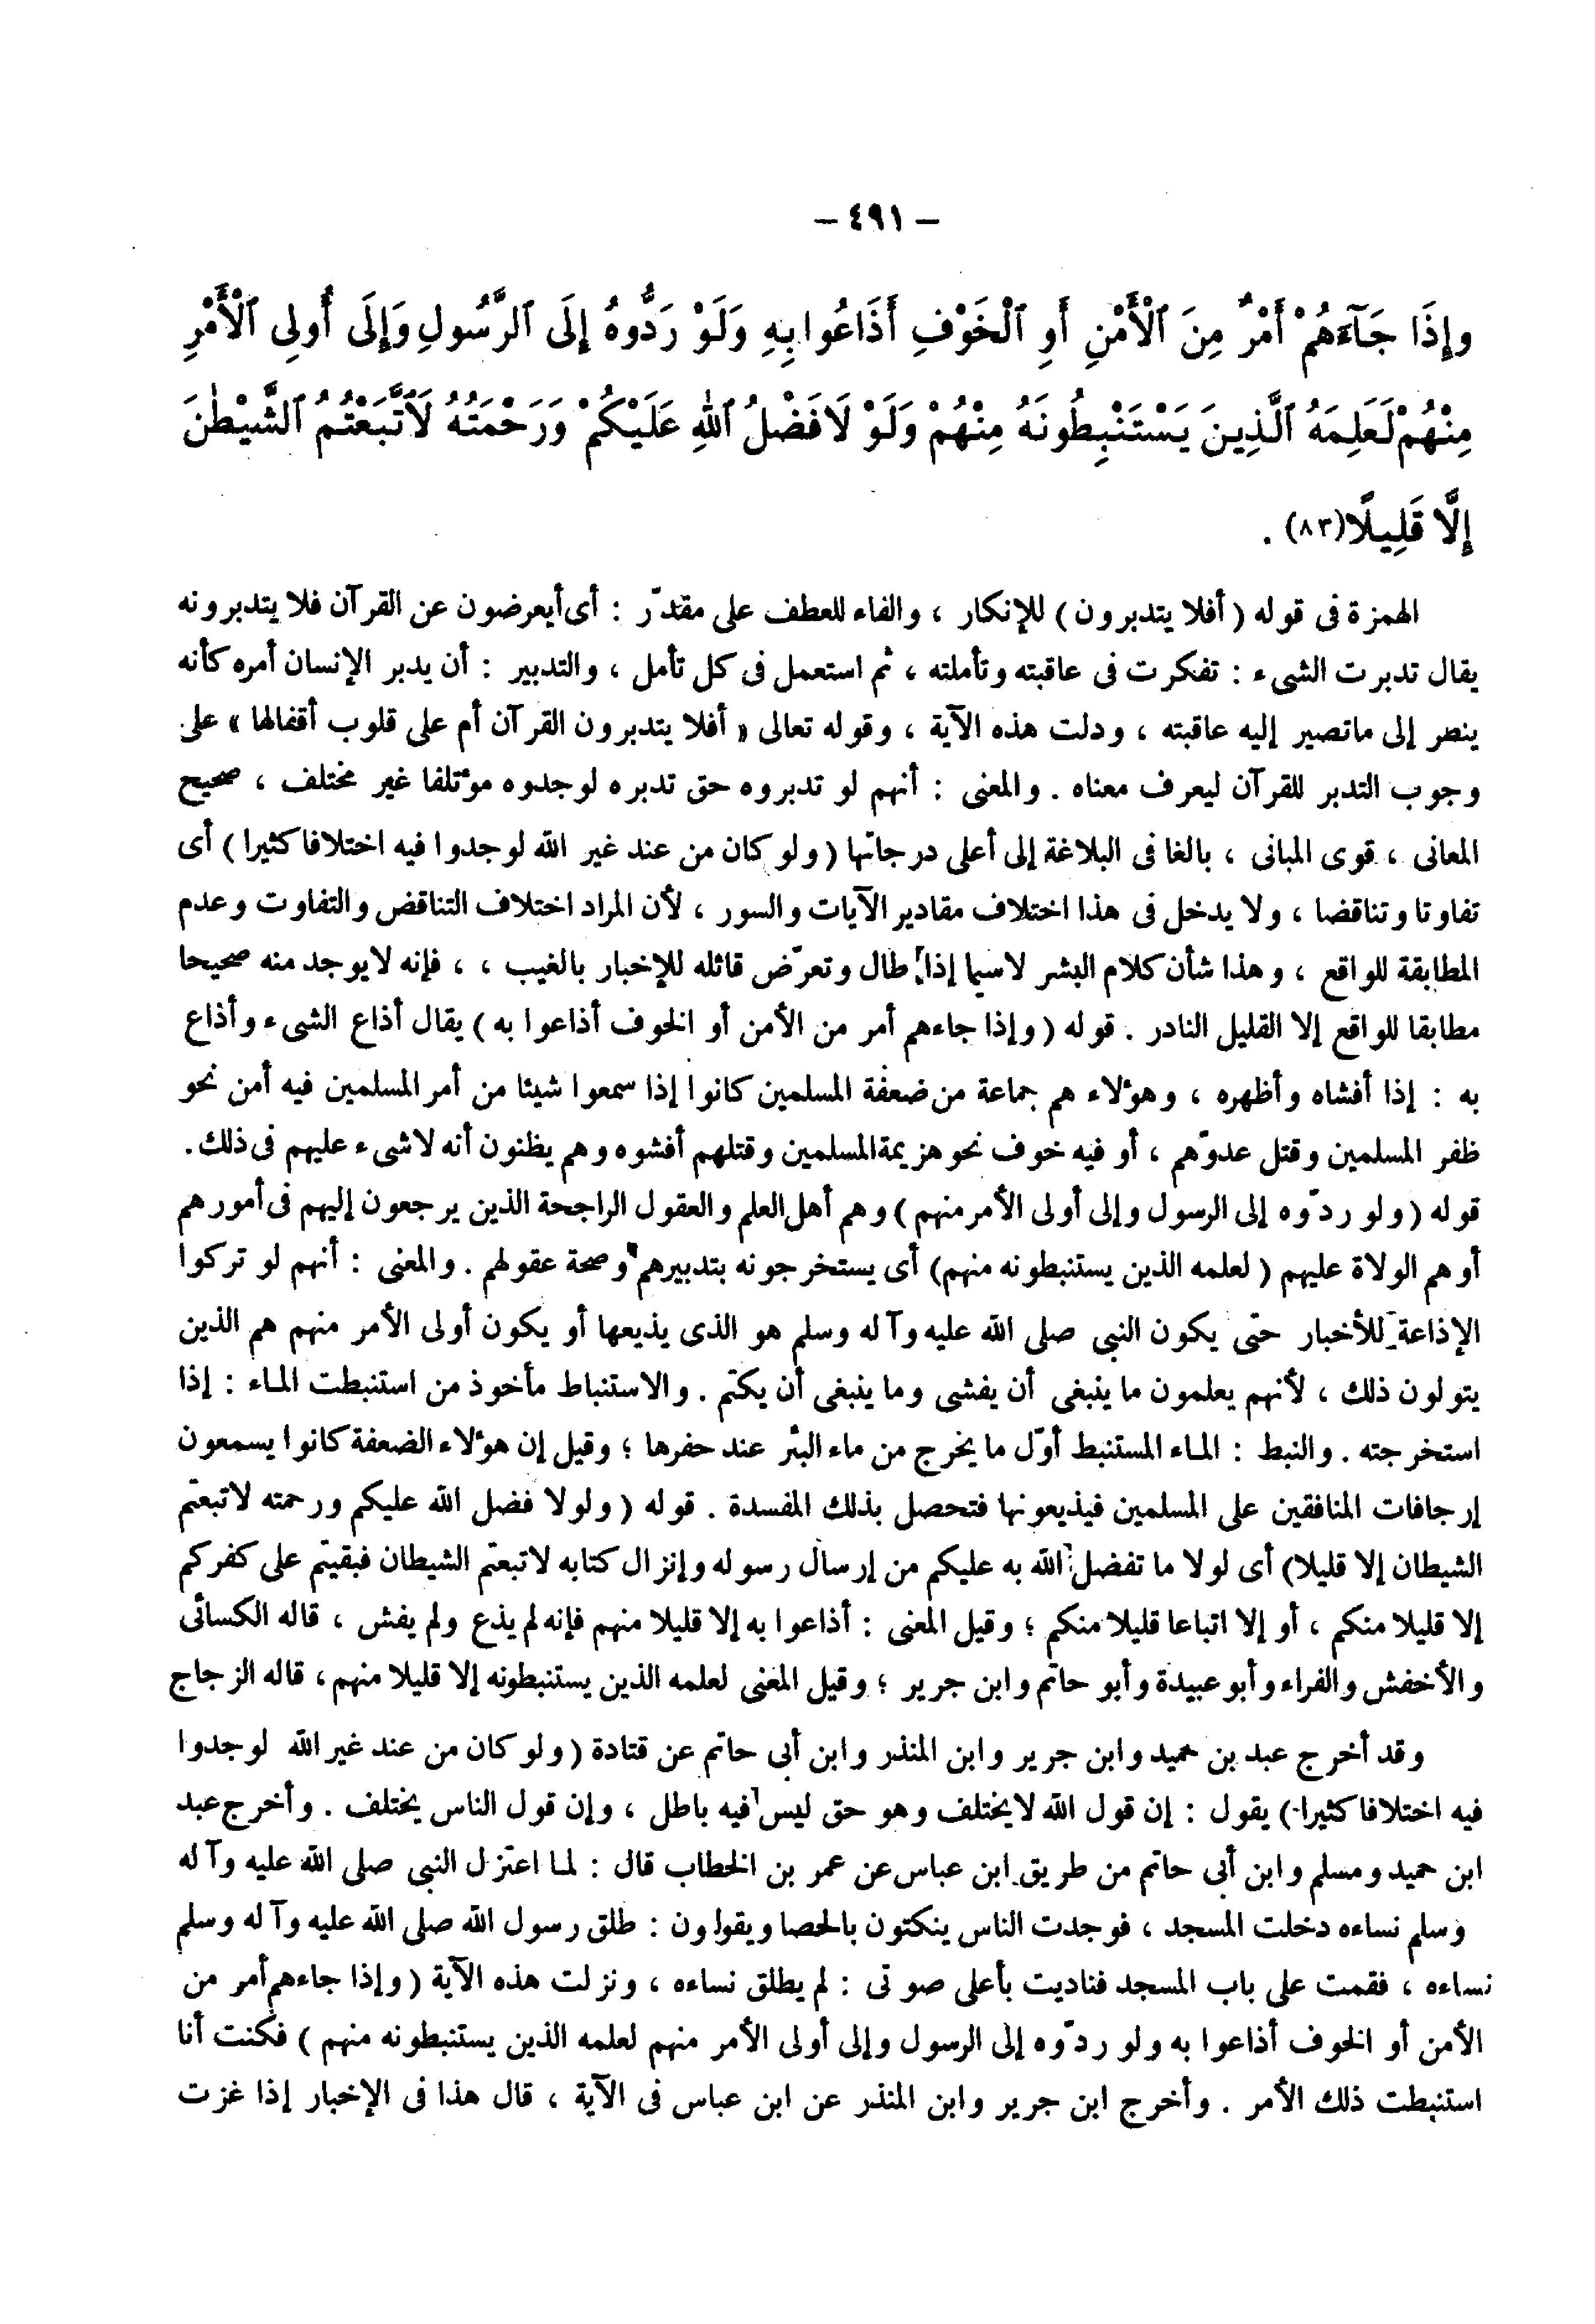 - ٤٩١ -
وإِذَا جَآءَهُمْ أَمْرٌ مِنَ ٱلْأَمْنِ أَوِ ٱلْخَوْفِ أَذَاعُوا بِهِ وَلَوْ رَدُّوهُ إِلَى ٱلرَّسُولِ وَإِلَى أُولِى ٱلْأَمْرِ
مِنْهُمْ لَعَلِمَهُ ٱلَّذِينَ يَسْتَنْبِطُونَهُ مِنْهُمْ وَلَوْ لَا فَضْلُ ٱللهِ عَلَيْكُمْ وَرَحْمَتُهُ لَٱتَّبَعْتُمُ ٱلشَّيْطٰنَ
إِلَّا قَلِيلًا (٨٣) .
الهمزة فى قوله ( أفلا يتدبرون ) للإنكار ، والفاء للعطف على مقدّر : أى أيعرضون عن القرآن فلا يتدبرونه
يقال تدبرت الشىء : تفكرت فى عاقبته وتأملته ، ثم استعمل فى كل تأمل ، والتدبير : أن يدبر الإنسان أمره كأنه
ينصر إلى ماتصير إليه عاقبته ، ودلت هذه الآية ، وقوله تعالى « أفلا يتدبرون القرآن أم على قلوب أقفالها » على
وجوب التدبر للقرآن ليعرف معناه . والمعنى : أنهم لو تدبروه حق تدبره لوجدوه مؤتلفا غير مختلف ، صحيح
المعانى ، قوى المبانى ، بالغا فى البلاغة إلى أعلى درجاتها ( ولو كان من عند غير الله لوجدوا فيه اختلافا كثيرا ) أى
تفاوتا وتناقضا ، ولا يدخل فى هذا اختلاف مقادير الآيات والسور ، لأن المراد اختلاف التناقض والتفاوت وعدم
المطابقة للواقع ، وهذا شأن كلام البشر لاسيما إذا طال وتعرّض قائله للإخبار بالغيب ، ، فإنه لايوجد منه صحيحا
مطابقا للواقع إلا القليل النادر . قوله ( وإذا جاءهم أمر من الأمن أو الخوف أذاعوا به ) يقال أذاع الشىء وأذاع
به : إذا أفشاه وأظهره ، وهؤلاء هم جماعة من ضعفة المسلمين كانوا إذا سمعوا شيئا من أمر المسلمين فيه أمن نحو
ظفر المسلمين وقتل عدوّهم ، أو فيه خوف نحو هزيمة المسلمين وقتلهم أفشوه وهم يظنون أنه لاشىء عليهم فى ذلك .
قوله ( ولو ردّوه إلى الرسول وإلى أولى الأمر منهم ) وهم أهل العلم والعقول الراجحة الذين يرجعون إليهم فى أمورهم
أو هم الولاة عليهم ( لعلمه الذين يستنبطونه منهم) أى يستخرجونه بتدبيرهم وصحة عقولهم . والمعنى : أنهم لو تركوا
الإذاعة للأخبار حتى يكون النبى صلى الله عليه وآله وسلم هو الذى يذيعها أو يكون أولى الأمر منهم هم الذين
يتولون ذلك ، لأنهم يعلمون ما ينبغى أن يفشى وما ينبغى أن يكتم . والاستنباط مأخوذ من استنبطت الماء : إذا
استخرجته . والنبط : الماء المستنبط أوّل ما يخرج من ماء البئر عند حفرها ؛ وقيل إن هؤلاء الضعفة كانوا يسمعون
إرجافات المنافقين على المسلمين فيذيعونها فتحصل بذلك المفسدة . قوله ( ولولا فضل الله عليكم ورحمته لاتبعتم
الشيطان إلا قليلا) أى لولا ما تفضل الله به عليكم من إرسال رسوله وإنزال كتابه لاتبعتم الشيطان فبقيتم على كفركم
إلا قليلا منكم ، أو إلا اتباعا قليلا منكم ؛ وقيل المعنى : أذاعوا به إلا قليلا منهم فإنه لم يذع ولم يفش ، قاله الكسائى
والأخفش والفراء وأبو عبيدة وأبو حاتم وابن جرير ؛ وقيل المعنى لعلمه الذين يستنبطونه إلا قليلا منهم ، قاله الزجاج
وقد أخرج عبد بن حميد وابن جرير وابن المنذر وابن أبى حاتم عن قتادة ( ولو كان من عند غير الله لوجدوا
فيه اختلافا كثيرا ) يقول : إن قول الله لايختلف وهو حق ليس فيه باطل ، وإن قول الناس يختلف . وأخرج عبد
ابن حميد ومسلم وابن أبى حاتم من طريق ابن عباس عن عمر بن الخطاب قال : لما اعتزل النبى صلى الله عليه وآله
وسلم نساءه دخلت المسجد ، فوجدت الناس ينكتون بالحصا ويقولون : طلق رسول الله صلى الله عليه وآله وسلم
نساءه ، فقمت على باب المسجد فناديت بأعلى صوتى : لم يطلق نساءه ، ونزلت هذه الآية ( وإذا جاءهم أمر من
الأمن أو الخوف أذاعوا به ولو ردّوه إلى الرسول وإلى أولى الأمر منهم لعلمه الذين يستنبطونه منهم ) فكنت أنا
استنبطت ذلك الأمر . وأخرج ابن جرير وابن المنذر عن ابن عباس فى الآية ، قال هذا فى الإخبار إذا غزت